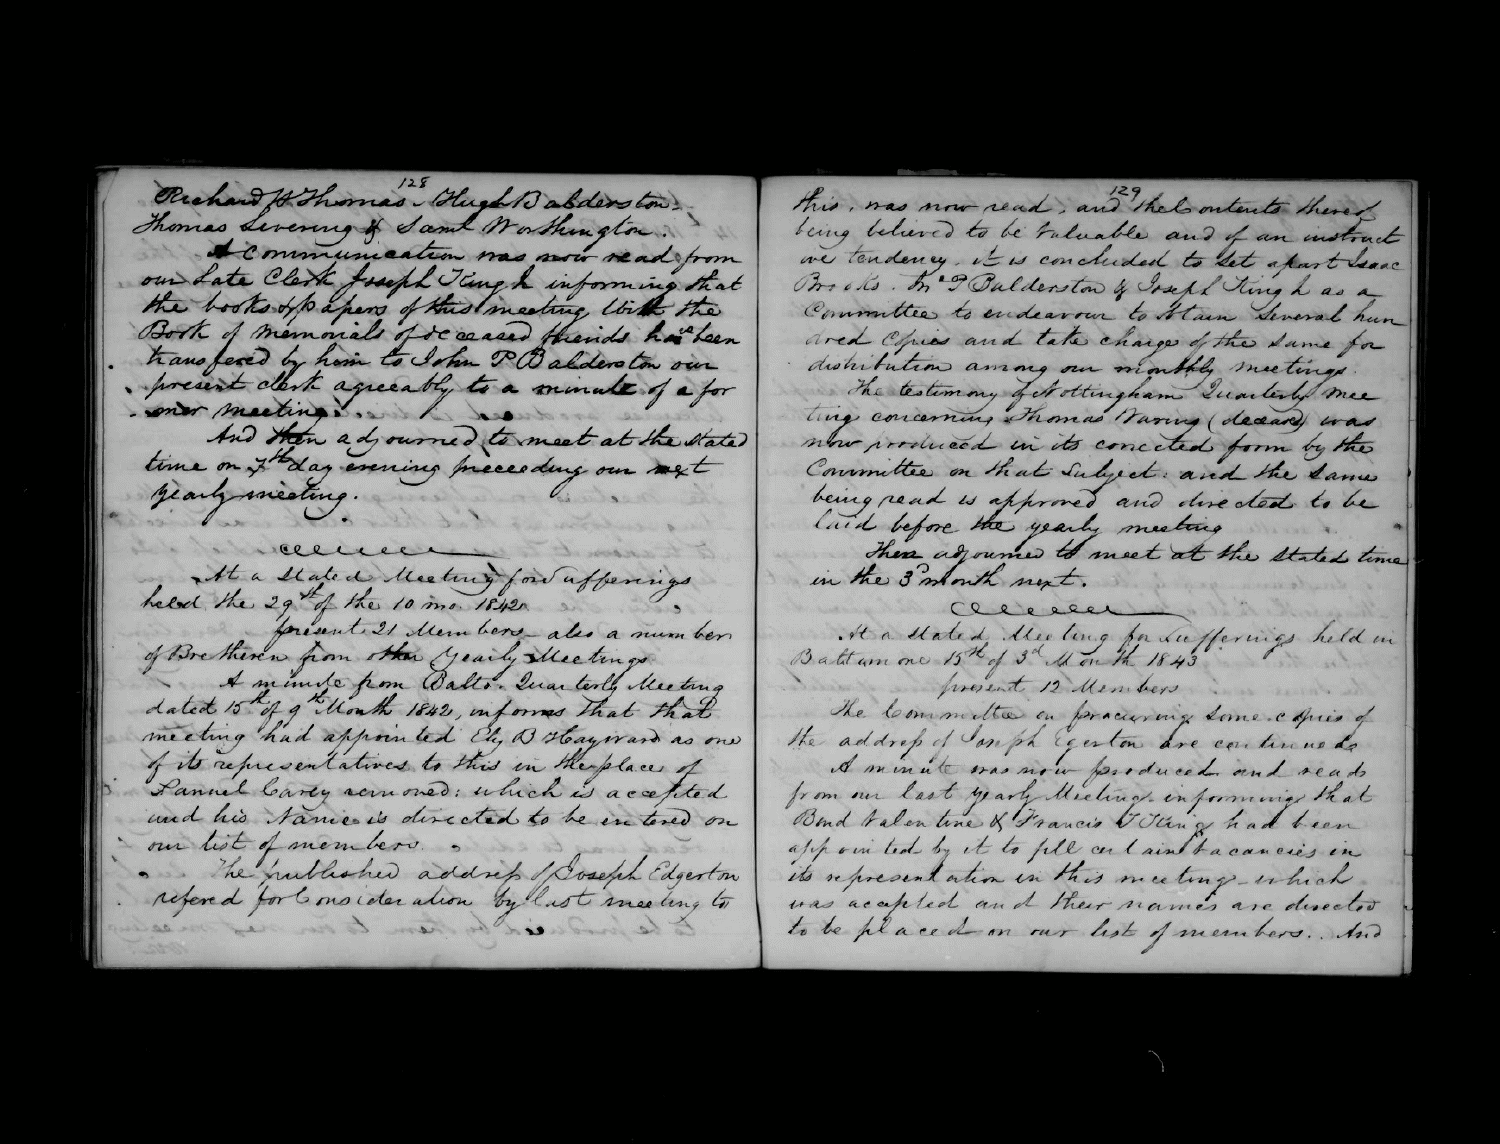 128
Richard H Thomas. Hugh Balderston.
Thomas Levering & Saml Worthington.
A communication was now read from
our Late Clerk Joseph King Jr informing that
the books & papers of this meeting With the
Book of Memorials of deceased friends have been
transfered by him to John P Balderston our
present clerk agreeably to a minute of a for
mer meeting.
And then adjourned to meet at the stated
time on 7th day evening preceeding our next
yearly meeting.
At a Stated Meeting for Sufferings
held the 29th of the 10 mo. 1842
present 21 Members - also a number
of Bretheren from other Yearly Meetings
A minute from Balto. Quarterly Meeting
dated 15th of 9th Month 1842, informs that that
meeting had appointed Ely B Hayward as one
of its representatives to this in the place of
Samuel Carey removed; which is accepted
and his Name is directed to be entered on
our list of members.
The published address of Joseph Edgerton
refered for Consideration by last meeting to
129
this, was now read, and the Contents thereof
being believed to be Valuable and of an instruct
ive tendency. it is concluded to set apart Isaac
Brooks. P Balderston & Joseph King Jr as a
Committee to endeavour to obtain Several hun
dred Copies and take charge of the same for
distribution among our monthly meetings.
The testimony of Nottingham Quarterly Mee
ting concerning Thomas Waring (deceasd) was
now produced in its corrected form by the
Committee on that Subject: and the same
being read is approved and directed to be
laid before the yearly meeting
Then adjourned to meet at the stated time
in the 3d month next.
At a Stated Meeting for Sufferings held in
Baltimore 15th of 3d Month 1843
present 12 Members
The Committee on procuring Some copies of
the address of Joseph Egerton are continued
A minute was now produced and read
from our last Yearly Meeting informing that
Bond Valentine & Francis T King had been
appointed by it to fill certain Vacancies in
its representation in this meeting - which
was accepted and their names are directed
to be placed on our list of members.. And